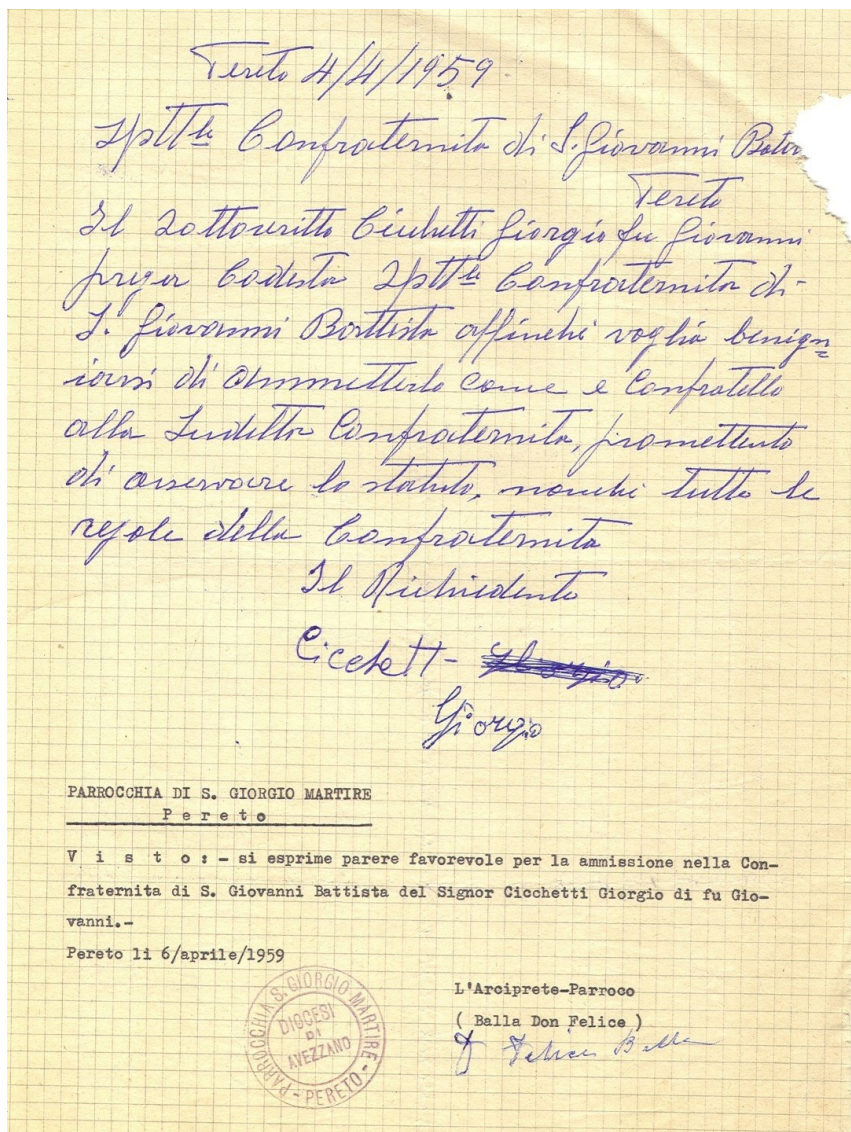 Pereto 4/4/1959
Sptt.le Confraternita di S. Giovanni
Pereto
Il Sottoscritto Cicchetti Giorgio fu Giovanni
prega Codesta Sptt.le Confraternita di
S. Giovanni Battista affinchè voglia benign=
iarsi di ammetterlo come e Confratello
alla Sudetta Confraternita, promettento
di osservare lo statuto, nonchè tutte le
regole della Confraternita
Il Richiedente
Cicchetti
Giorgio
PARROCCHIA DI S. GIORGIO MARTIRE
Pereto
Visto:- si esprime parere favorevole per la ammissione nella Con-
fraternita di S. Giovanni Battista del Signor Cicchetti Giorgio di fu Gio-
vanni.-
Pereto li 6/aprile/1959
L'Arciprete-Parroco
( Balla Don Felice )
Felice Balla
PARROCCHIA S. GIORGIO MARTIRE - PERETO -
DIOCESI
DI
AVEZZANO